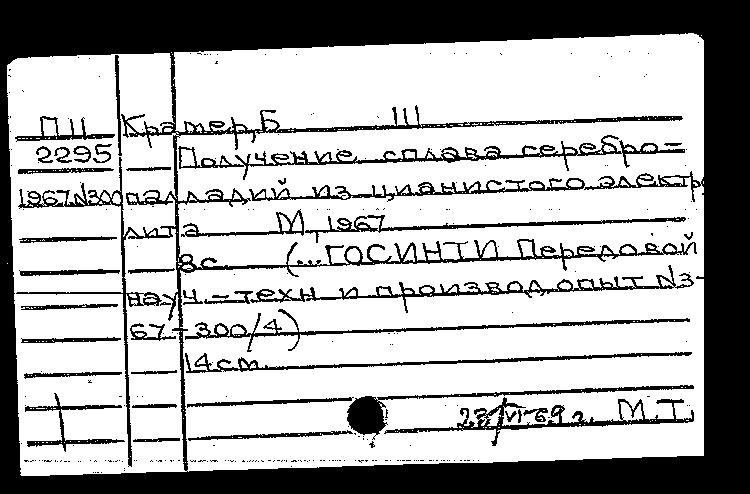 П11 Крамер, Б III
2295 Получение сплава серебро-
1967 N300 палладий из цианистого электро
лита М, 1967
8с. (...ГОСИНТИ Передовой
науч.-техн и производ. опыт N3-
67-300/4)
14см.
23/VI-69г. М.Т.